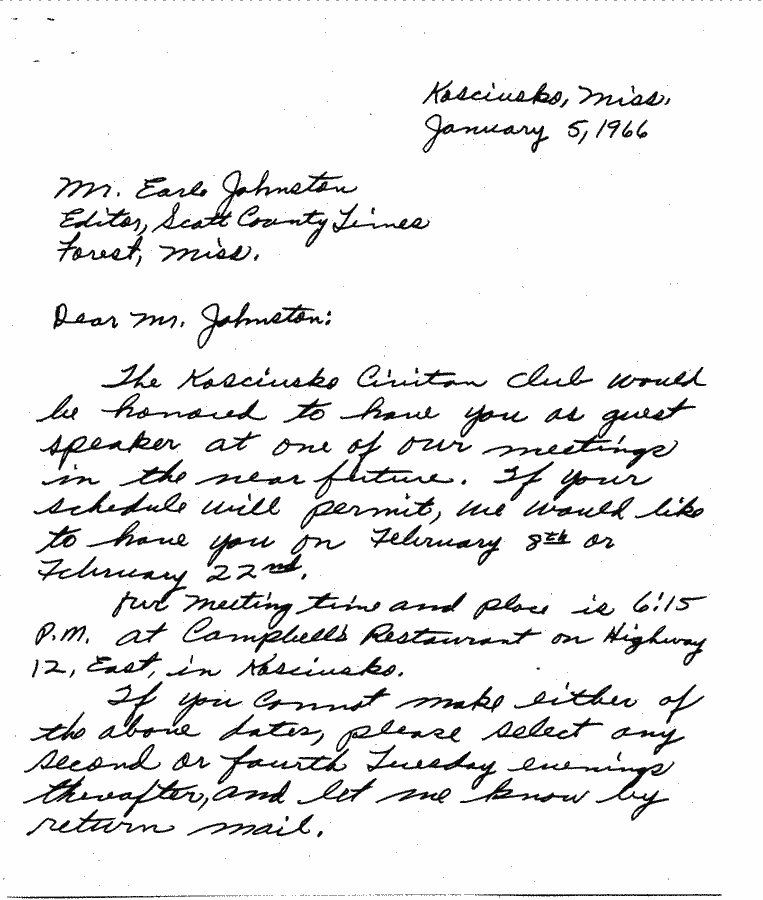 Kosciusko, Miss.
January 5, 1966
Mr. Earle Johnston
Editor, Scott County Times
Forest, Miss.
Dear Mr. Johnston:
The Kosciusko Civitan Club would
be honored to have you as guest
speaker at one of our meetings
in the near future. If your
schedule will permit, we would like
to have you on February 8th or
February 22nd.
Our meeting time and place is 6:15
P.M. at Campbell's Restaurant on Highway
12, East, in Kosciusko.
If you cannot make either of
the above dates, please select any
second or fourth Tuesday evenings
thereafter, and let me know by
return mail.